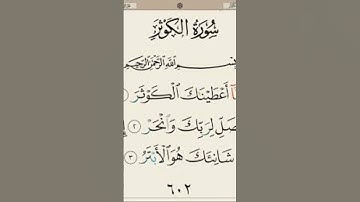 سُورَةُ الكَوْثَرِ
بِسْمِ اللَّهِ الرَّحْمَٰنِ الرَّحِيمِ
أَعْطَيْنَاكَ الْكَوْثَرَ
لِرَبِّكَ وَانْحَرْ ٢
شَانِئَكَ هُوَ الْأَبْتَرُ ٣
٦٠٢